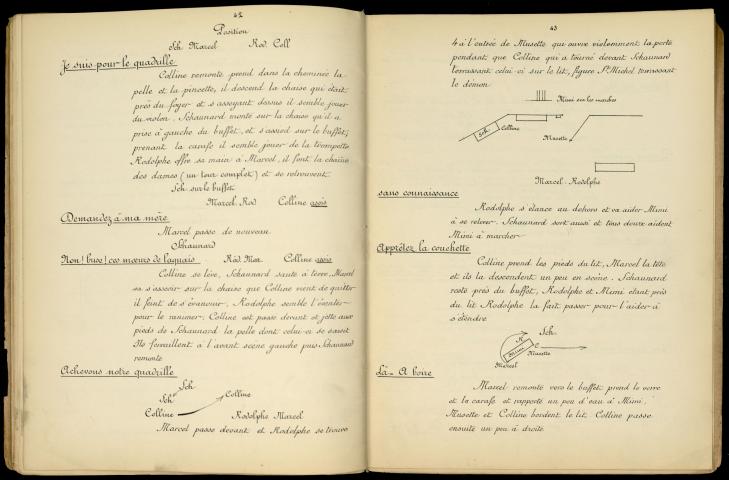 42
Position
Sch. Marcel Rod. Coll
Je suis pour le quadrille
Colline remonte prend dans la cheminée la
pelle et la pincette, il descend la chaise qui était
près du foyer et s'asseyant dessus il semble jouer
du violon. Schaunard monte sur la chaise qu'il a
prise à gauche du buffet, et s'assied sur le buffet,
prenant la carafe il semble jouer de la trompette
Rodolphe offre sa main à Marcel, il font la chaîne
des dames (un tour complet) et se retrouvent
Sch. sur le buffet
Marcel. Rod Colline assis
Demandez à ma mère
Marcel passe de nouveau
Schaunard
Non! buse! ces mœurs de laquais Rod. Mar. Colline assis
Colline se lève, Schaunard saute à terre, Marcel
va s'asseoir sur la chaise que Colline vient de quitter
il feint de s'évanouir, Rodolphe semble l'éventer
pour le ranimer. Colline est passé devant et jette aux
pieds de Schaunard la pelle dont celui-ci se saisit
Ils ferraillent à l'avant scène gauche puis Schaunard
remonte
Achevons notre quadrille
Sch
Sch Colline
Colline Rodolphe Marcel
Marcel passe devant et Rodolphe se trouve
43
4 à l'entrée de Musette qui ouvre violemment la porte
pendant que Colline qui a tourné devant Schaunard
terrassant celui-ci sur le lit, figure St Michel terrassant
le démon.
Mimi sur les marches
Sch. Colline
Musette
Marcel. Rodolphe
sans connaissance
Rodolphe s'élance au dehors et va aider Mimi
à se relever. Schaunard sort aussi et tous deux aident
Mimi à marcher
Apprêtez la couchette
Colline prend les pieds du lit, Marcel la tête
et ils la descendent un peu en scène. Schaunard
reste près du buffet, Rodolphe et Mimi étant près
du lit Rodolphe la fait passer pour l'aider à
s'étendre
Sch.
R
Mimi C
Musette
Marcel
Là - A boire
Marcel remonte vers le buffet prend le verre
et la carafe et rapporte un peu d'eau à Mimi,
Musette et Colline bordent le lit. Colline passe
ensuite un peu à droite